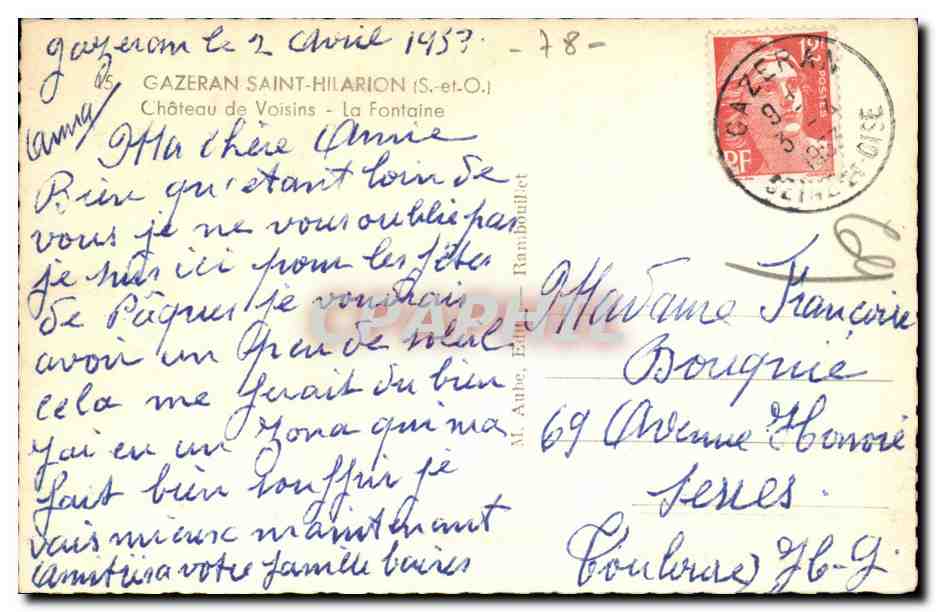 Gazeran le 2 Avril 1953
- 78 -
GAZERAN SAINT-HILARION (S.-et-O.)
Château de Voisins - La Fontaine
Anna
Ma chère Annie
Bien qu'étant loin de
vous je ne vous oublie pas
je suis ici pour les fêtes
de Pâques je voudrais
avoir un peu de soleil
cela me ferait du bien
j'ai eu un zona qui m'a
fait bien souffrir je
vais mieux maintenant
amitiés a votre famille baises
M. Aube, Edit. - Rambouillet
CPARHIL
12F
POSTES
RF
GAZERAN
9
3 - 4
SEINE-ET-OISE
Madame Françoise
Bouquié
69 Avenue Honoré
Serres.
Toulouse H-G.